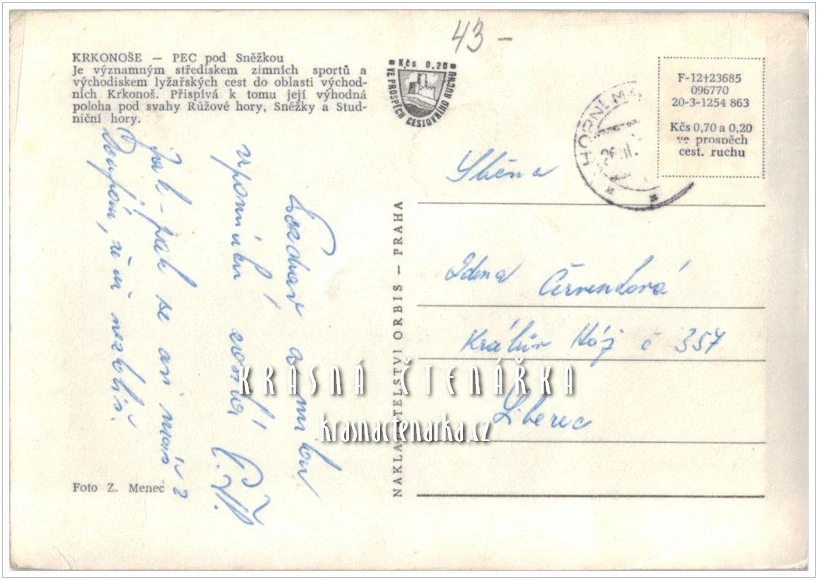 43 –
KRKONOŠE — PEC pod Sněžkou
Je významným střediskem zimních sportů a
východiskem lyžařských cest do oblasti východ-
ních Krkonoš. Přispívá k tomu její výhodná
poloha pod svahy Růžové hory, Sněžky a Stud-
niční hory.
Kčs 0,20
VE PROSPĚCH CESTOVNÍHO RUCHU
F-12†23685
096770
20-3-1254 863
Kčs 0,70 a 0,20
ve prospěch
cest. ruchu
HORNÍ
Slečna
Zdena Červenková
Králův Háj č 357
Liberec
Pozdrav a milou
vzpomínku posílá
Jak-pak se asi máš?
Doufám, že se nezlobíš.
NAKLADATELSTVÍ ORBIS — PRAHA
KRÁSNÁ ČTENÁŘKA
krasnactenarka.cz
Foto Z. Menec